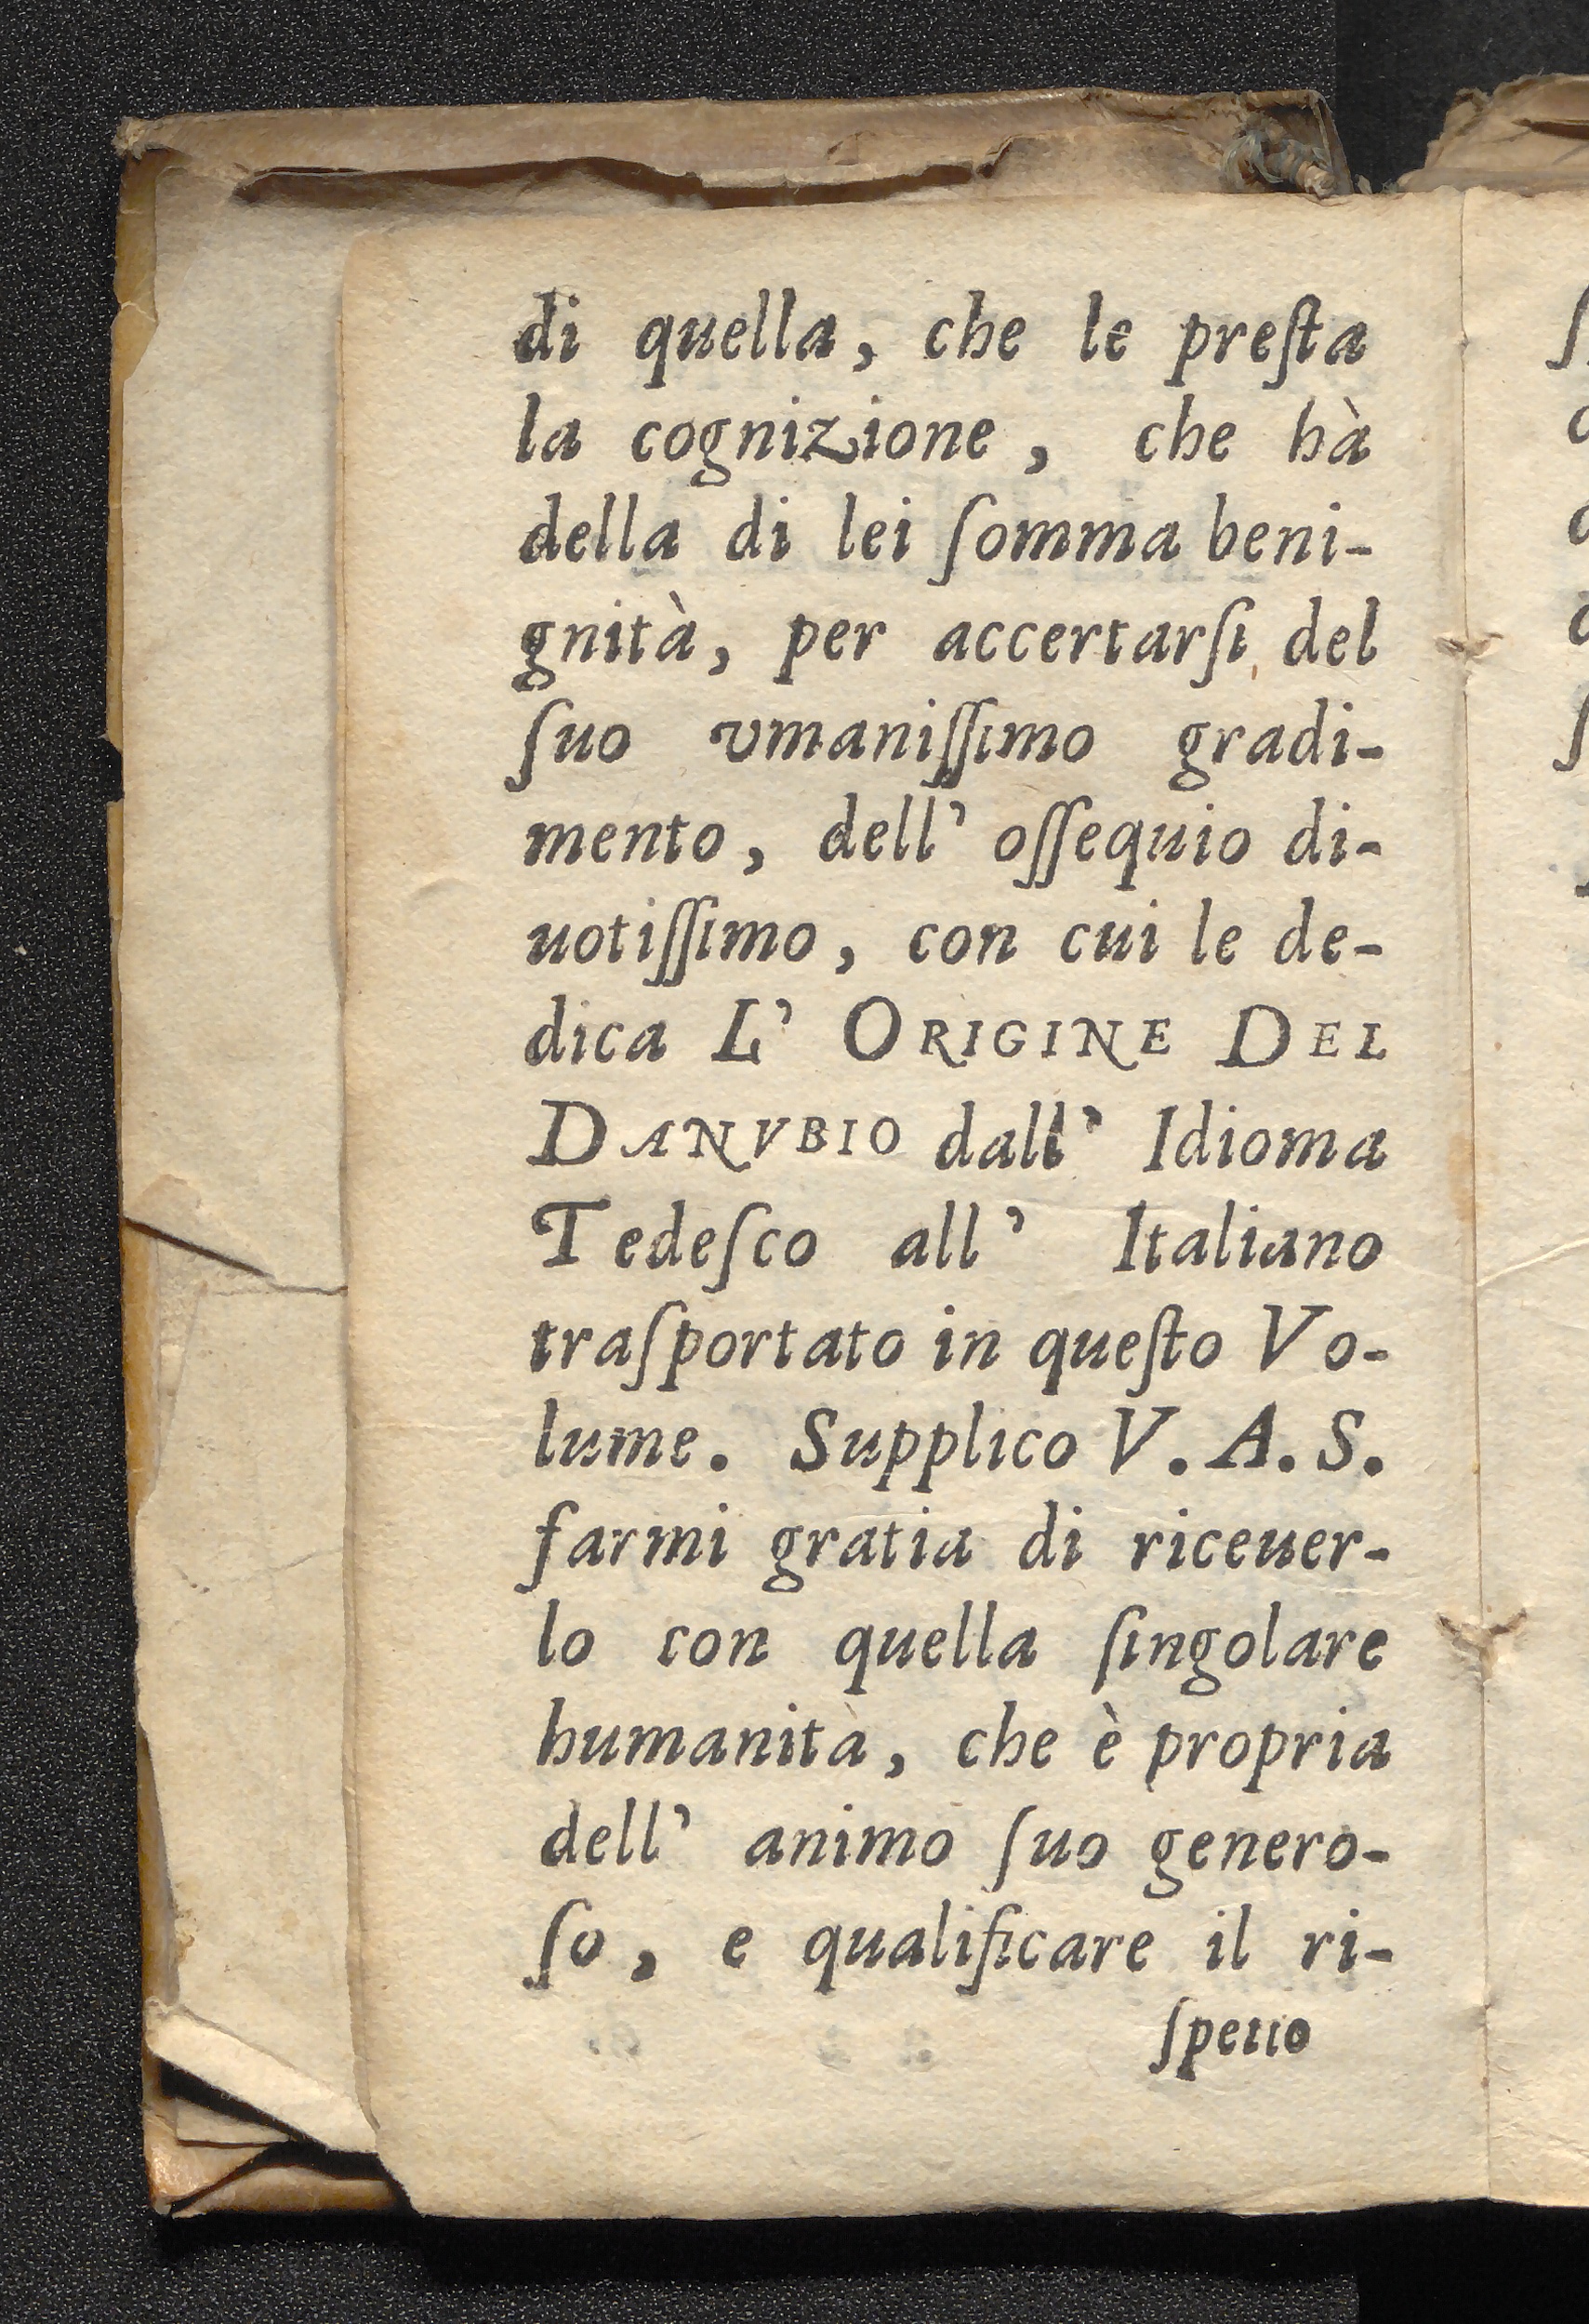 di quella, che le preſta
la cognizione, che hà
della di lei ſomma beni-
gnità, per accertarſi del
ſuo vmaniſſimo gradi-
mento, dell' oſſequio di-
uotiſſimo, con cui le de-
dica L' ORIGINE DEL
DANVBIO dall' Idioma
Tedeſco all' Italiano
traſportato in queſto Vo-
lume. Supplico V. A. S.
farmi gratia di riceuer-
lo con quella ſingolare
humanità, che è propria
dell' animo ſuo genero-
ſo, e qualificare il ri-
ſpetto